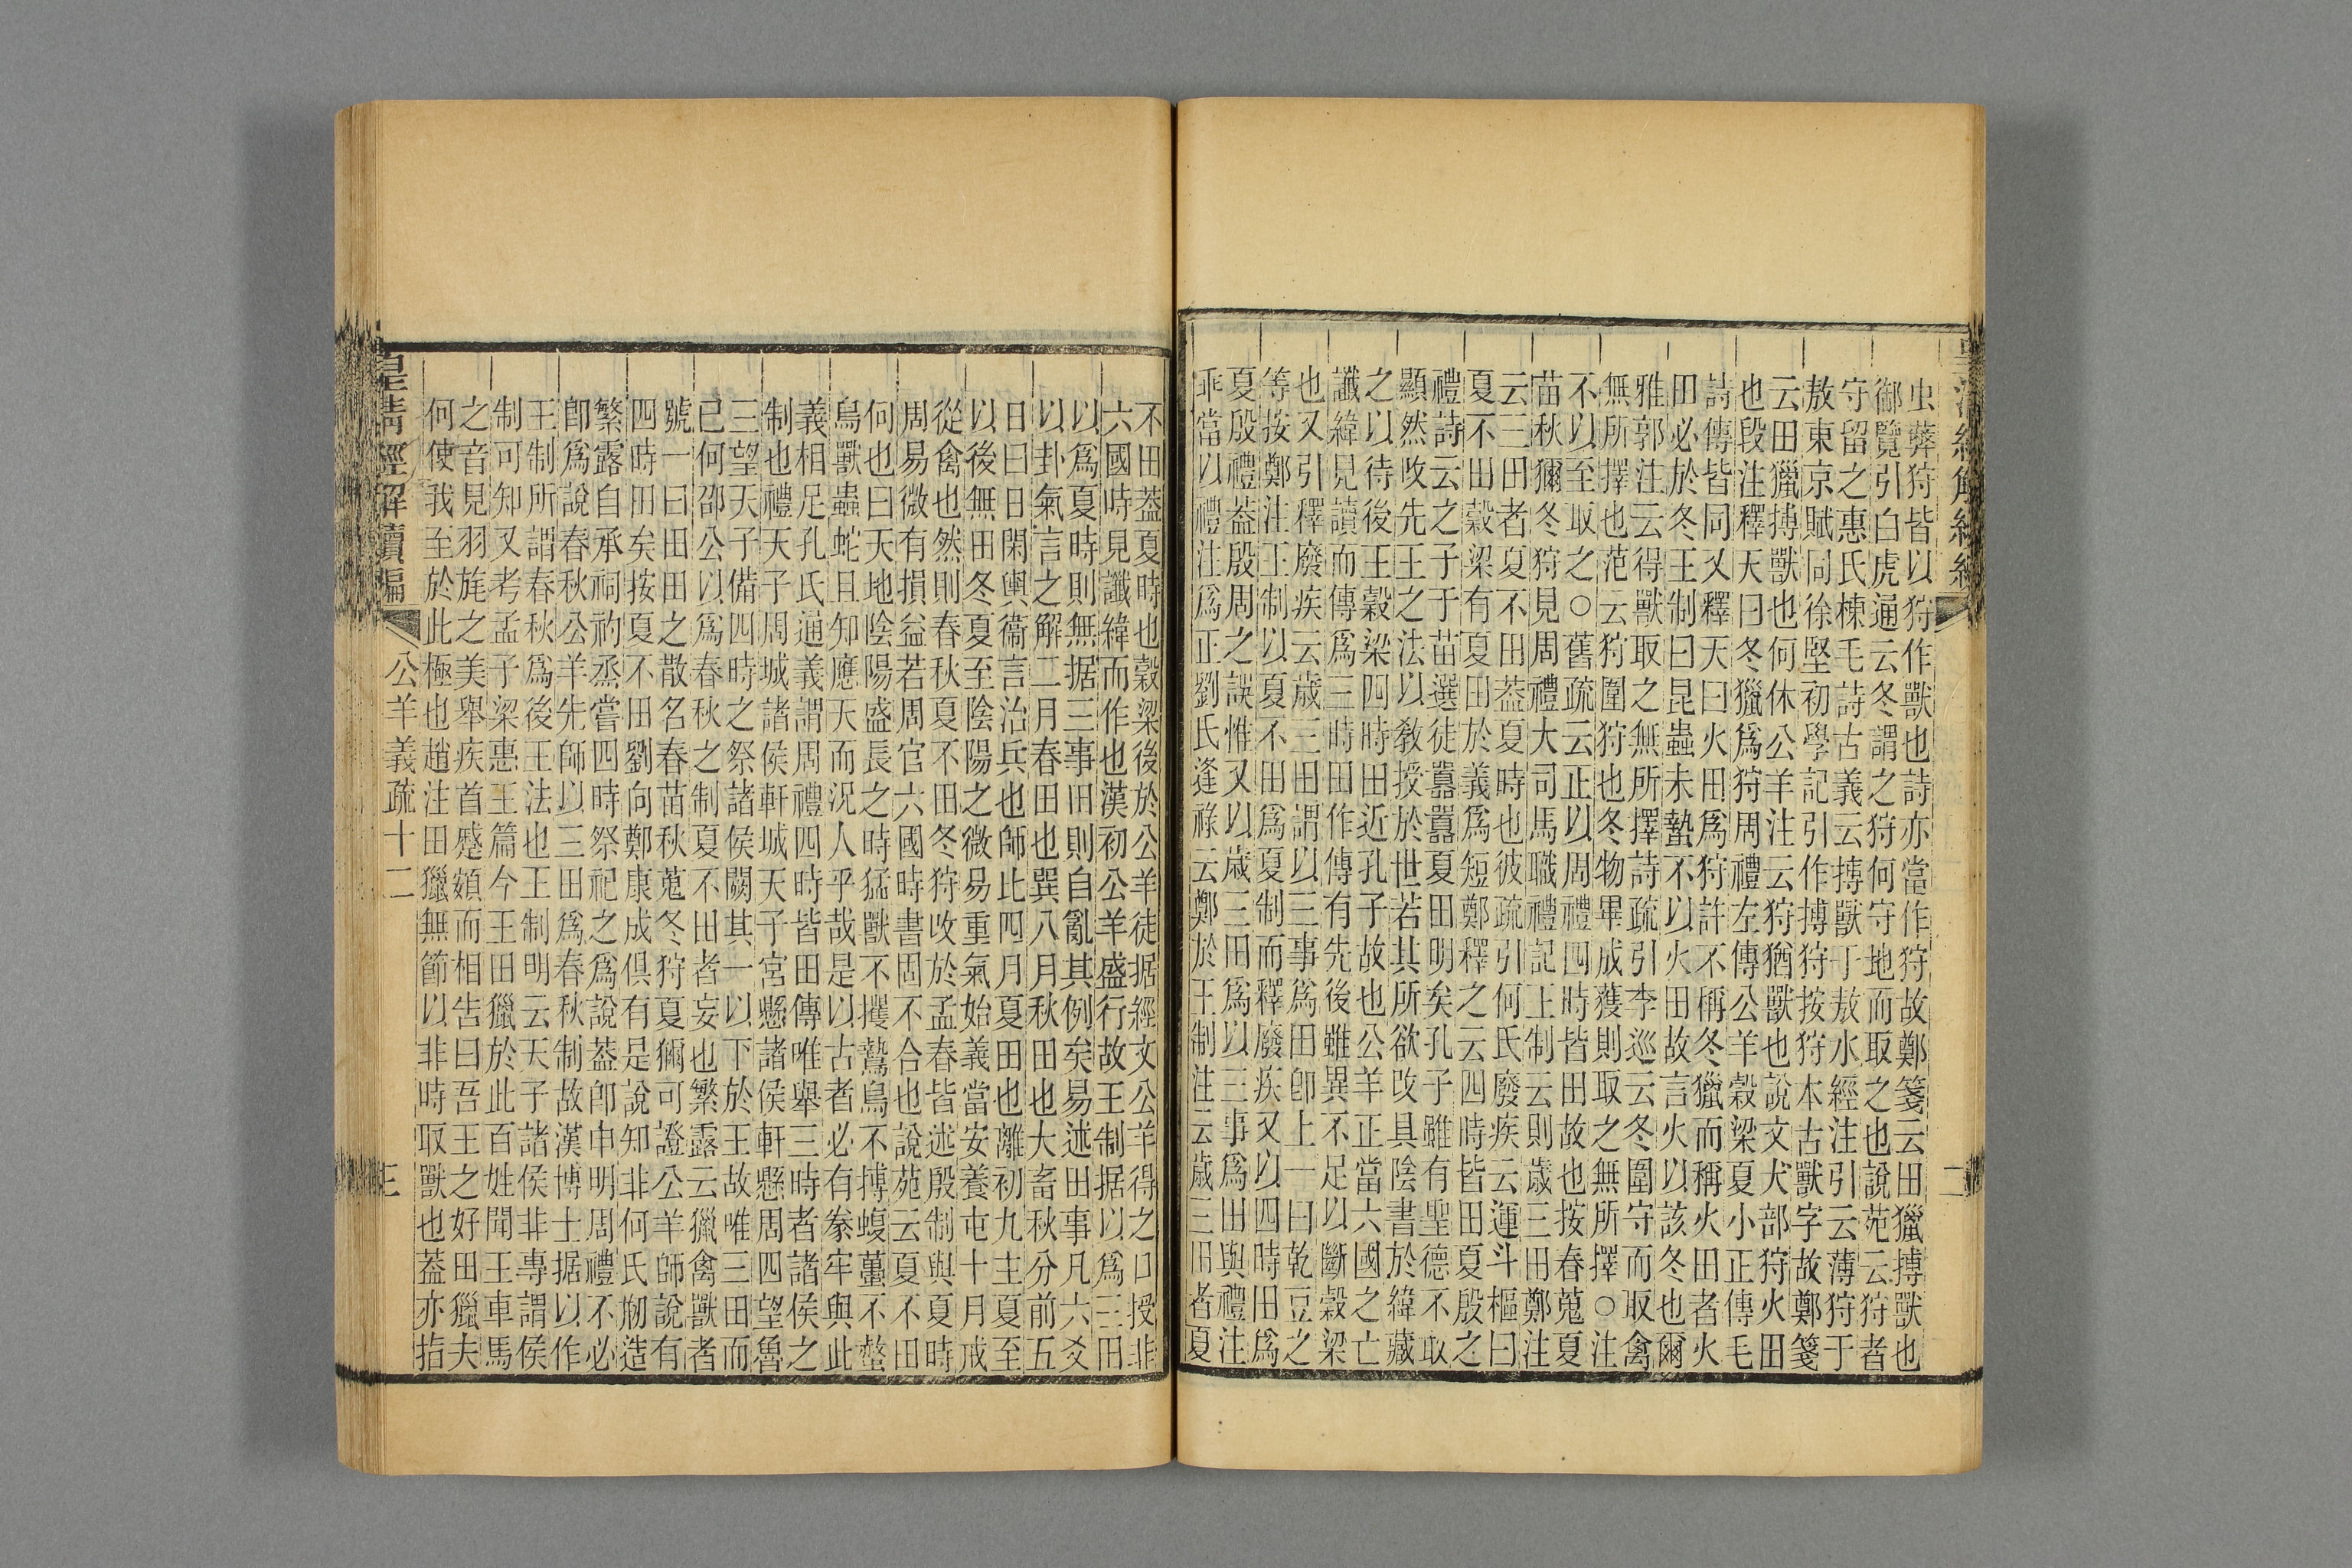 虫彝狩皆以狩作獸也詩亦當作狩故鄭箋云田獵搏獸也
御覽引白虎通云冬謂之狩何守地而取之也說苑云狩者
守留之惠氏棟毛詩古義云搏獸于敖水經注引云薄狩于
敖東京賦同徐堅初學記引作搏狩按狩本古獸字故鄭箋
云田獵搏獸也何休公羊注云狩猶獸也說文犬部狩火田
也段注釋天曰冬獵爲狩周禮左傳公羊穀梁夏小正傳毛
詩傳皆同又釋天曰火田爲狩許不稱冬獵而稱火田者火
田必於冬王制曰昆蟲未蟄不以火田故言火以該冬也爾
雅郭注云得獸取之無所擇詩疏引李巡云冬圍守而取禽
無所擇也范云狩圍狩也冬物畢成獲則取之無所擇○注
不以至取之○舊疏云正以周禮四時皆田故也按春蒐夏
苗秋獮冬狩見周禮大司馬職禮記王制云則歲三田鄭注
云三田者夏不田蓋夏時也彼疏引何氏廢疾云運斗樞曰
夏不田穀梁有夏田於義爲短鄭釋之云四時皆田夏殷之
禮詩云之子于苗選徒囂囂夏田明矣孔子雖有聖德不敢
顯然改先王之法以敎授於世若其所欲改具陰書於緯藏
之以待後王穀梁四時田近孔子故也公羊正當六國之亡
讖緯見讀而傳爲三時田作傳有先後雖異不足以斷穀梁
也又引釋廢疾云歲三田謂以三事爲田卽上一曰乾豆之
等按鄭注王制以夏不田爲夏制而釋廢疾又以四時田爲
夏殷禮蓋殷周之誤惟又以歲三田爲以三事爲田與禮注
乖當以禮注爲正劉氏逢祿云鄭於王制注云歲三田者夏
不田蓋夏時也穀梁後於公羊徒据經文公羊得之口授非
六國時見讖緯而作也漢初公羊盛行故王制据以爲三田
以爲夏時則無据三事田則自亂其例矣易述田事凡六爻
以卦氣言之解二月春田也巽八月秋田也大畜秋分前五
日曰日閑輿衞言治兵也師比四月夏田也離初九主夏至
以後無田冬夏至陰陽之微易重氣始義當安養屯十月戒
從禽也然則春秋夏不田冬狩收於孟春皆述殷制與夏時
周易微有損益若周官六國時書固不合也說苑云夏不田
何也曰天地陰陽盛長之時猛獸不攫鷙鳥不搏蝮蠆不螫
鳥獸蟲蛇且知應天而況人乎哉是以古者必有豢牢與此
義相足孔氏通義謂周禮四時皆田傳唯舉三時者諸侯之
制也禮天子周城諸侯軒城天子宮懸諸侯軒懸周四望魯
三望天子備四時之祭諸侯闕其一以下於王故唯三田而
已何邵公以爲春秋之制夏不田者妄也繁露云獵禽獸者
號一曰田田之散名春苗秋蒐冬狩夏獮可證公羊師說有
四時田矣按夏不田劉向鄭康成俱有是說知非何氏刱造
繁露自承祠礿烝嘗四時祭祀之爲說蓋卽申明周禮不必
卽爲說春秋公羊先師以三田爲春秋制故漢博士据以作
王制所謂春秋爲後王法也王制明云天子諸侯非專謂侯
制可知又考孟子梁惠王篇今王田獵於此百姓聞王車馬
之音見羽旄之美舉疾首蹙頞而相告曰吾王之好田獵夫
何使我至於此極也趙注田獵無節以非時取獸也蓋亦掿
皇淸經解續編
公羊義疏十二
二
三